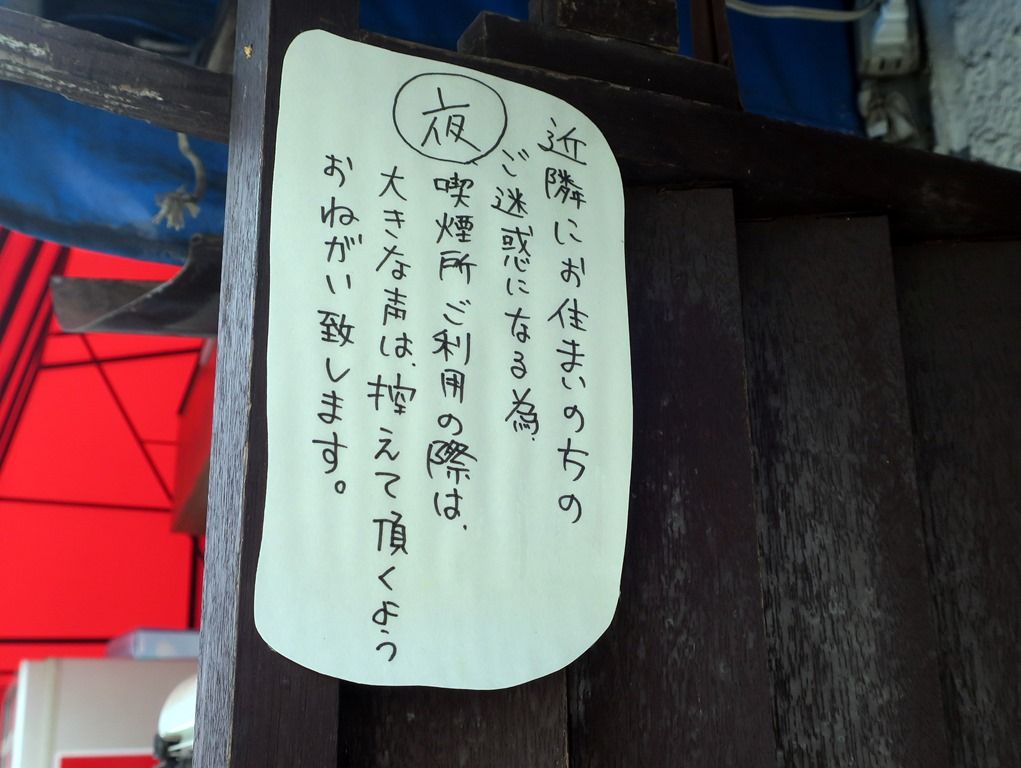 近隣にお住まいのちの
ご迷惑になる為、
夜 喫煙所ご利用の際は、
大きな声は、控えて頂くよう
おねがい致します。